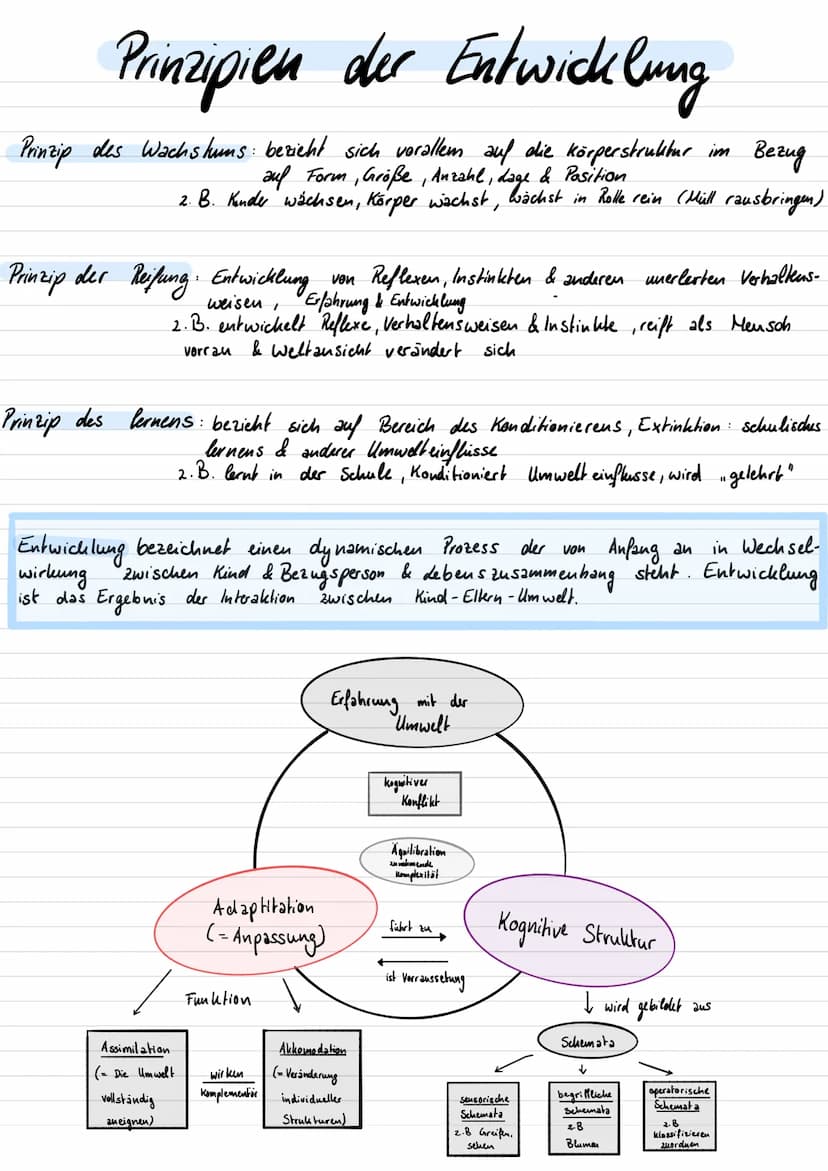 Prinzipien der Entwicklung
Prinzip des Wachstums: bezieht sich vorallem auf die Körperstruktur im Bezug
auf Form, Größe, Anzahl, Lage & Position
z.B. Kinder wachsen, Körper wächst, wächst in Rolle rein (Müll rausbringen)
Prinzip der Reifung: Entwicklung von Reflexen, Instinkten & anderen unerlerten Verhaltens-
weisen, Erfahrung & Entwicklung
z.B. entwickelt Reflexe, Verhaltensweisen & Instinkte, reift als Mensch
vorran & Weltansicht verändert sich
Prinzip des lernens: bezieht sich auf Bereich des Konditionierens, Extinktion: schulisches
lernens & anderer Umwelteinflüsse
z.B. lernt in der Schule, Konditioniert Umwelteinflusse, wird „gelehrt"
Entwicklung bezeichnet einen dynamischen Prozess der von Anfang an in Wechsel-
wirkung zwischen Kind & Bezugsperson & Lebenszusammenhang steht. Entwicklung
ist das Ergebnis der Interaktion zwischen Kind-Eltern-Umwelt.
Erfahrung mit der
Umwelt
Kognitiver
Konflikt
Äquilibration
zunehmende
Komplexität
Adaptitation
(=Anpassung)
führt zu
ist Vorraussetzung
Kognitive Struktur
Funktion
wird gebildet aus
Assimilation
(= Die Umwelt
vollständig
aneignen)
wirken
komplementär
Akkomodation
(=Veränderung
individueller
Strukturen)
Schemata
sensorische
Schemata
z.B Greifen,
sehen
begriffliche
Schemata
z.B
Blumen
operatorische
Schemata
z.B
klassifizieren
zuordnen